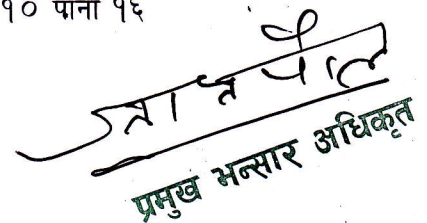 १० पाना १६
प्रमुख भन्सार अधिकृत